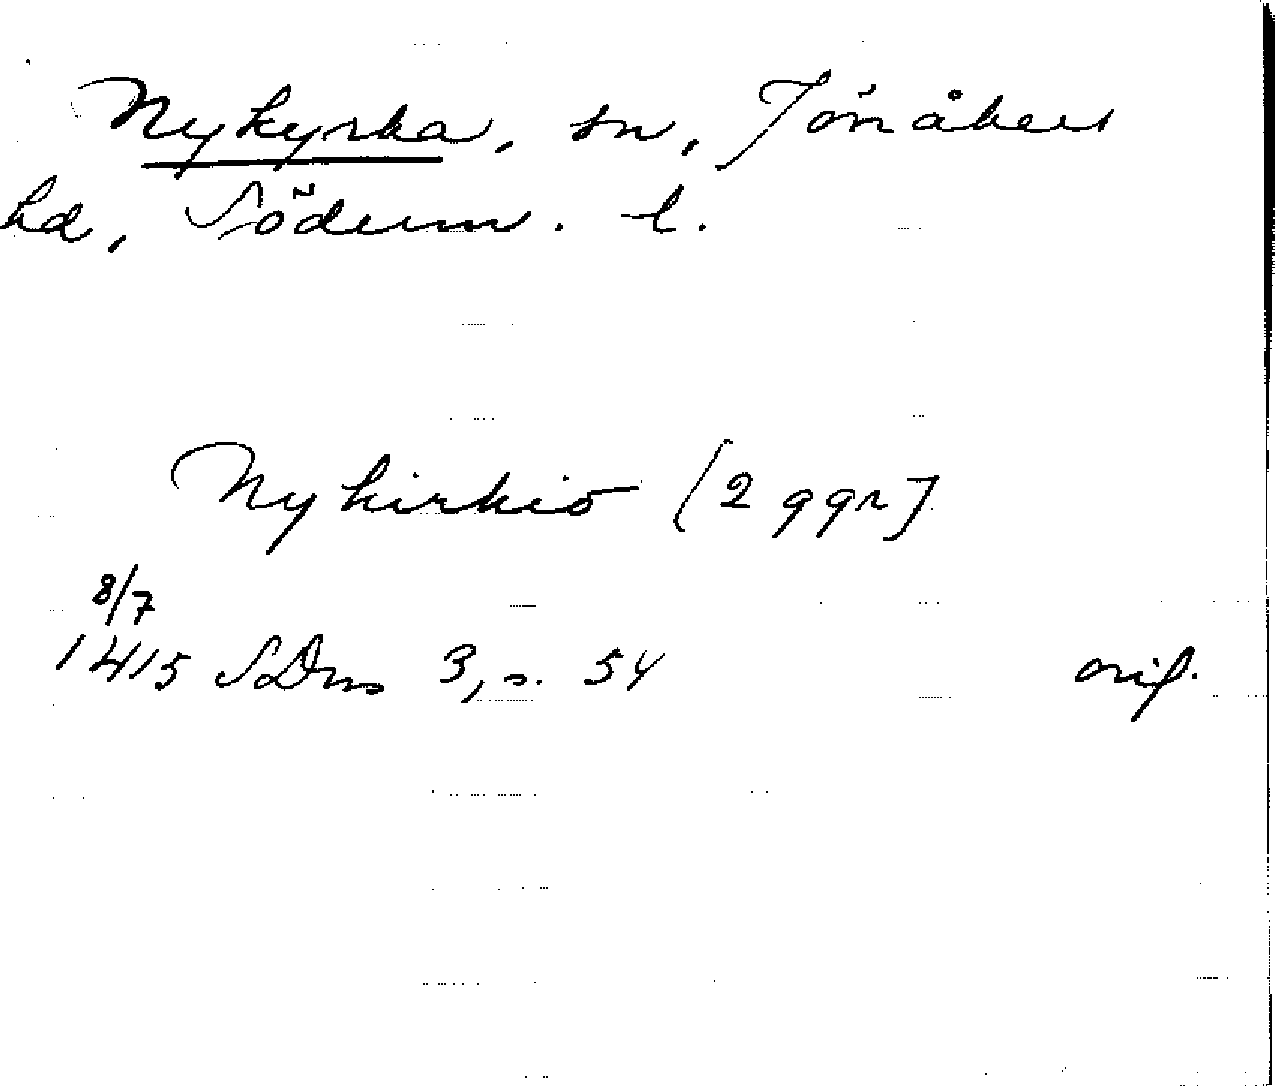 Nykyrka, sn, Jönåkers
hd, Söderm. l.
Nykirkio (2 ggr)
8/7
1415 SDns 3, s. 54 orig.